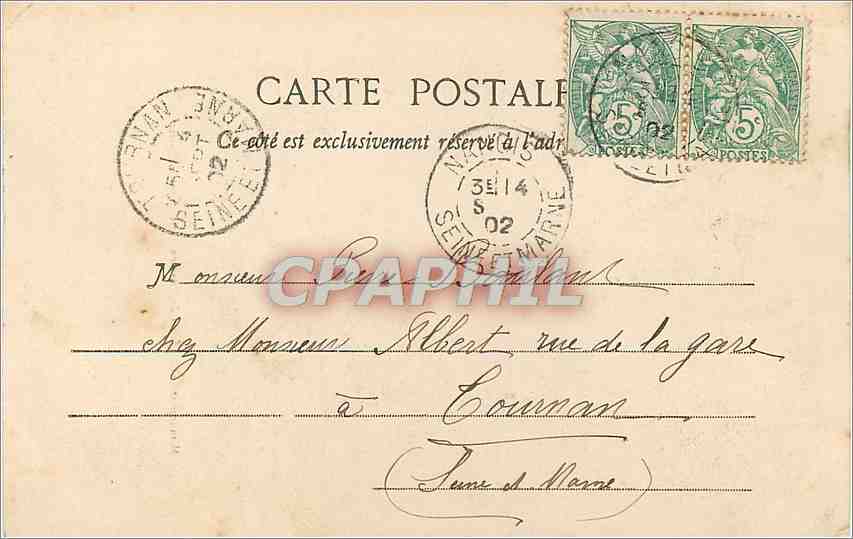 CARTE POSTALE
Ce côté est exclusivement réservé à l'adr
5c
POSTES
5c
POSTES
02
TOURNAN
SEINE ET MARNE
02
NANGIS
3E 14
S
02
SEINE ET MARNE
CPAPHIL
Monsieur
chez Monsieur Albert rue de la gare
à Tournan
(Seine et Marne)